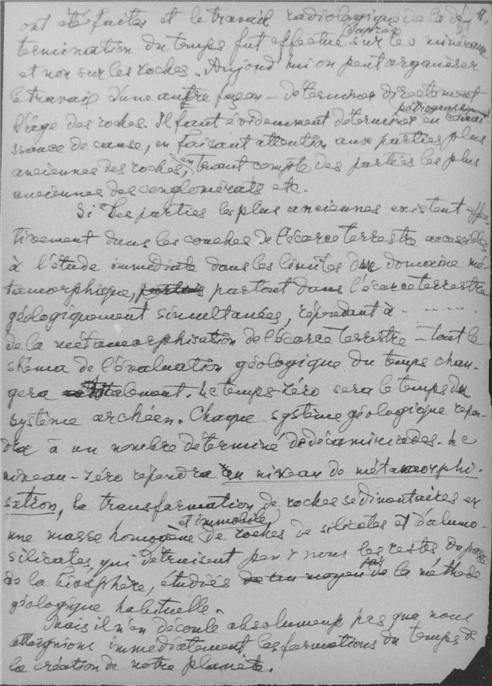 ont été faites et le travail radiologique de la dé
termination du temps fut effectué d'après les minéraux
et non sur les roches. Aujourd'hui on peut organiser
le travail d'une autre façon – déterminer directement
l'âge des roches. Il faut évidemment déterminer en connais
sance de cause, en faisant attention aux parties plus
anciennes des roches, en tenant compte des parties les plus
anciennes des conglomérats etc.
Si les parties les plus anciennes existent effec
tivement dans les couches de l'écorce terrestre accessibles
à l'étude immédiate dans les limites du domaine mé-
tamorphique, partout dans l'écorce terrestre
géologiquement simultanées, répondant à - ......
de la métamorphisation de l'écorce terrestre – tout le
schéma de l'évaluation géologique du temps chan-
gera totalement. Le temps zéro sera le temps du
système archéen. Chaque système géologique répon
dra à un nombre déterminé de décamiriades. Le
niveau-zéro répondra à un niveau de métamorphi-
sation, la transformation de roches sédimentaires en
une masse homogène et immobile de roches de silicates et d'alumo-
silicates, qui détruisent pour nous les restes du passé
de la biosphère, étudiés par la méthode
géologique habituelle.
Mais il n'en découle absolument pas que nous
atteignions immédiatement les formations du temps de
la création de notre planète.